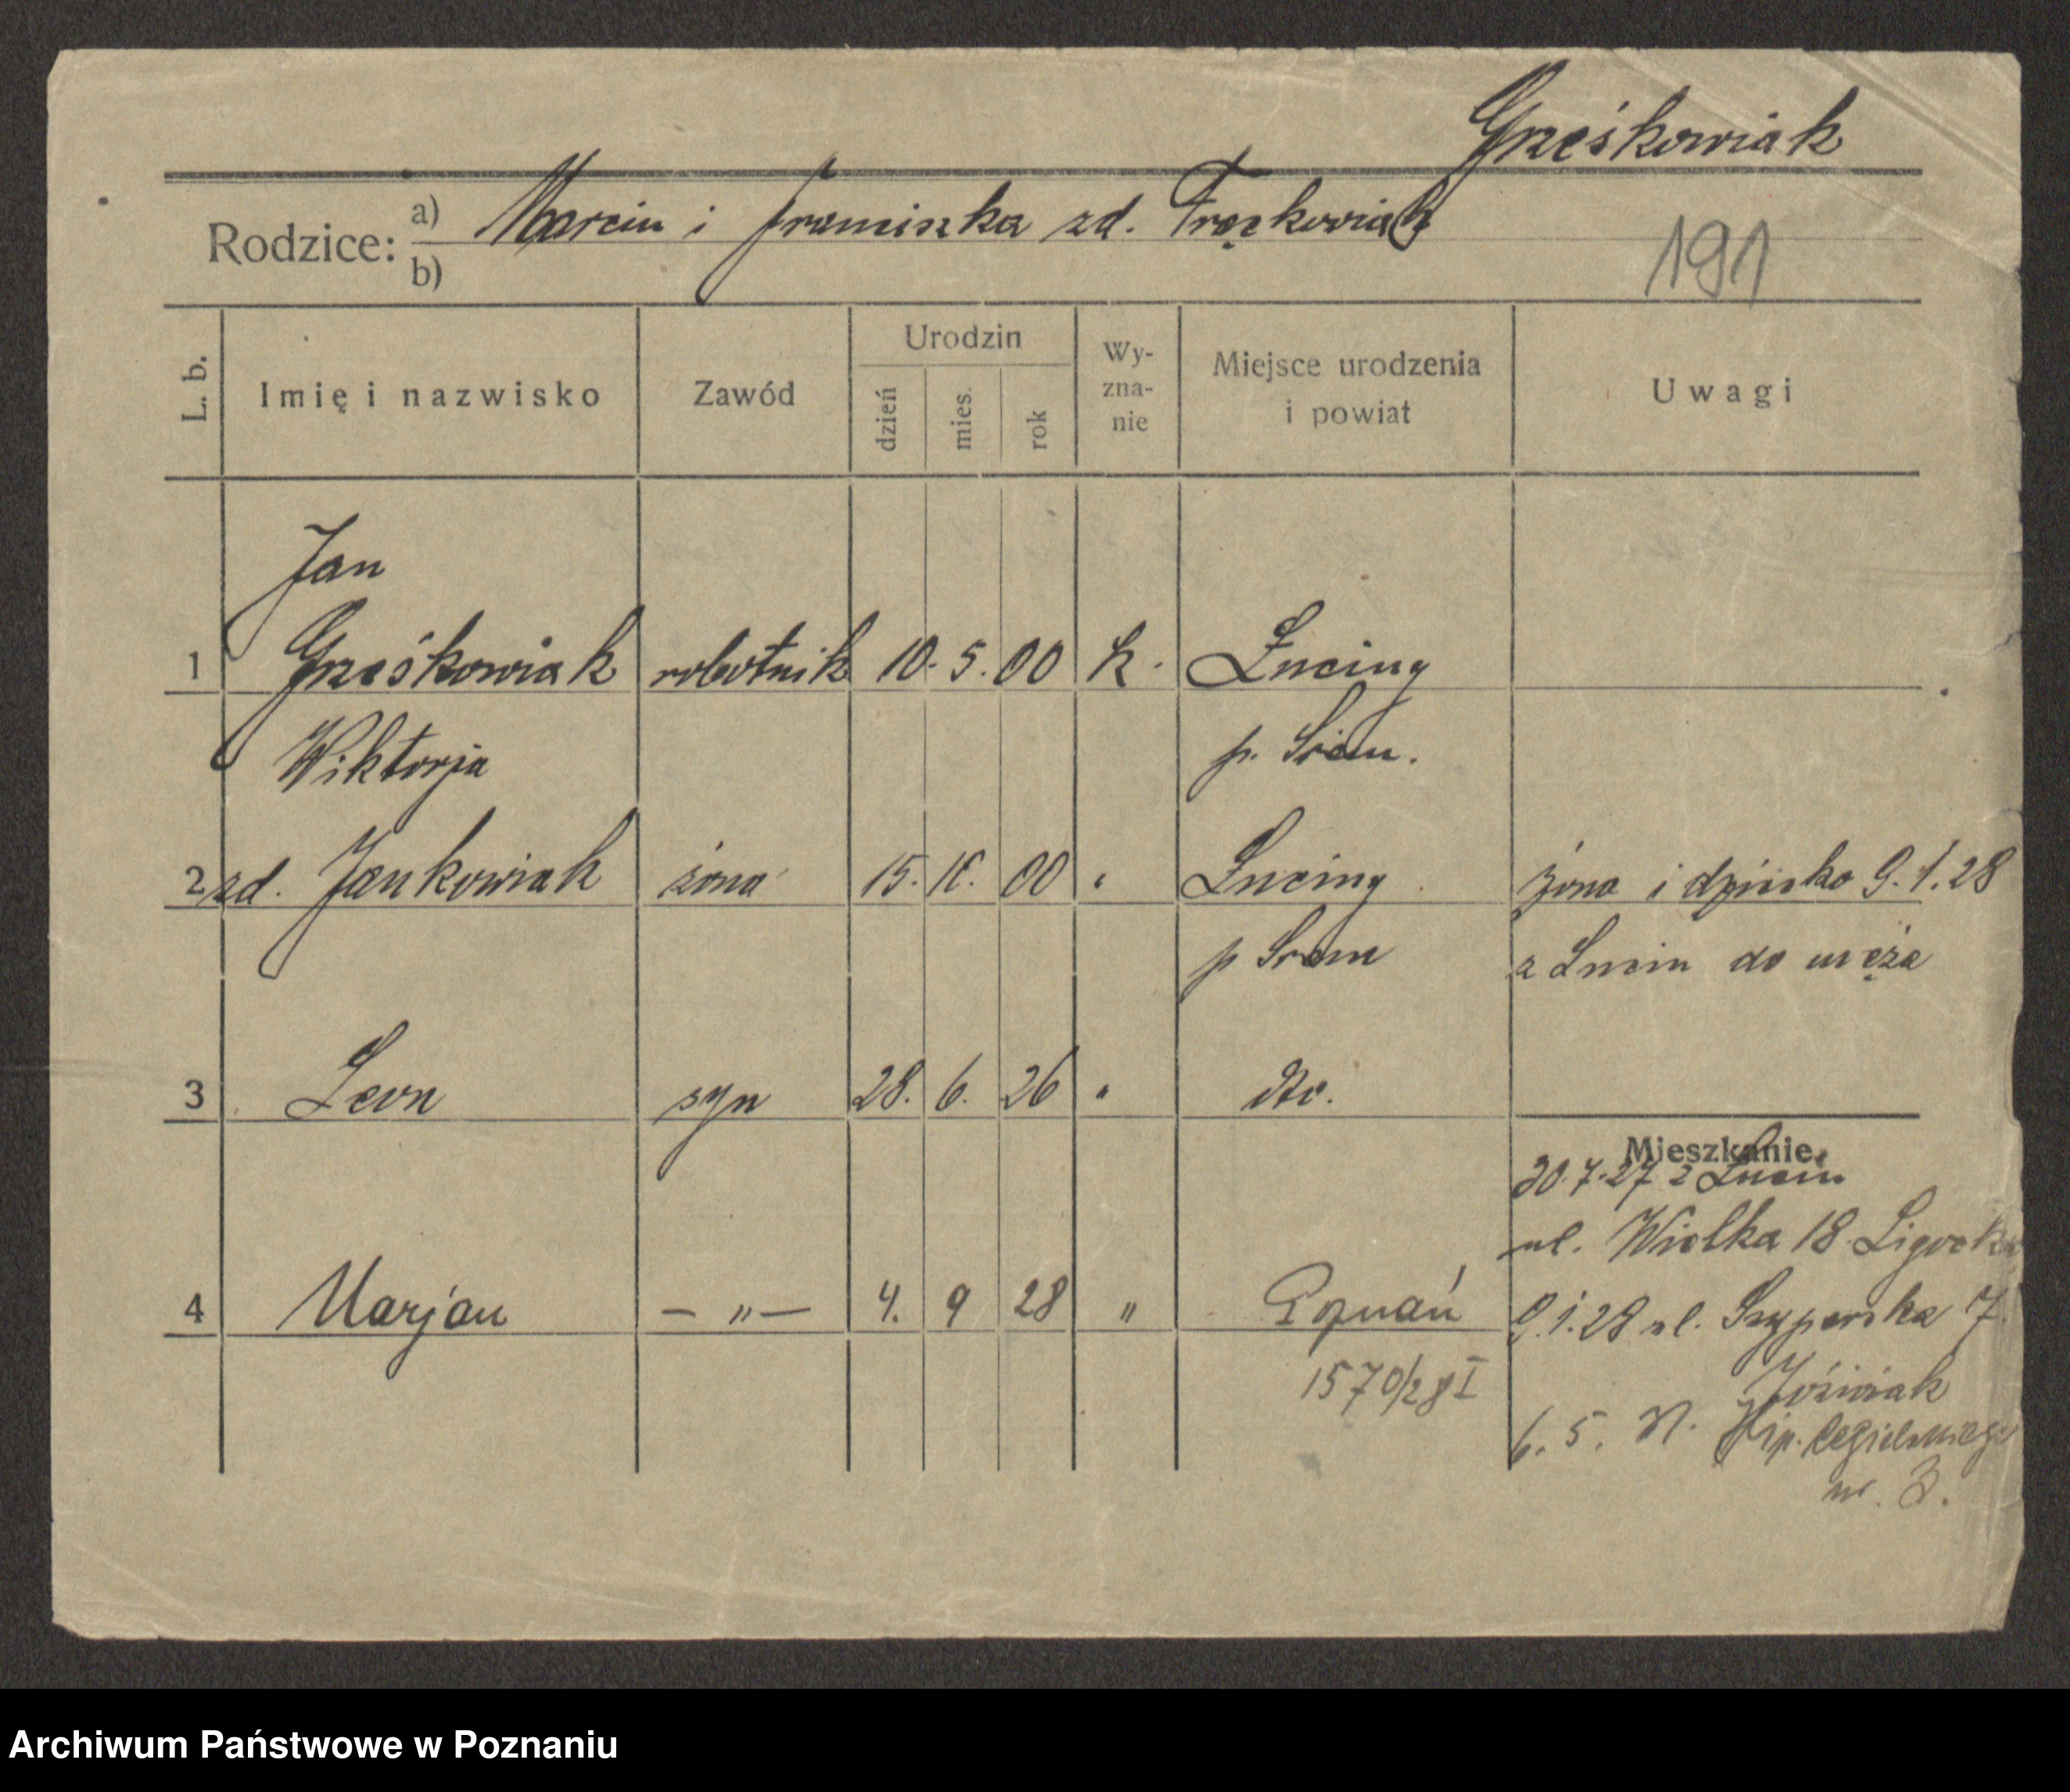 Grześkowiak
Rodzice: a) Marcin i Franciszka zd. Frąckowiak
b)
191
L. b.
Imię i nazwisko
Zawód
Urodzin
dzień
mies.
rok
Wy-
zna-
nie
Miejsce urodzenia
i powiat
Uwagi
Jan
1 Grześkowiak robotnik 10. 5. 00 k. Luciny
p. Śrem.
Wiktorja
2 zd. Jankowiak żona 15. 00 " Luciny
p Śrem
żona i dziecko 9. 1. 28
z Lucin do męża
3 Leon syn 28. 6. 26 " dto.
Mieszkanie
30. 7. 27 z Lucin
ul. Wielka 18
4 Marjan — " — 4. 9 28 " Poznań
9. 1. 28 ul. Szyperska 7
1570/28 I
Jóźwiak
6. 5. Hip. Cegielskiego
nr. 3.
Archiwum Państwowe w Poznaniu